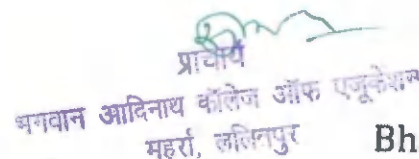 प्राचार्य
भगवान आदिनाथ कॉलेज ऑफ एजूकेशन
महर्रा, ललितपुर
Bh